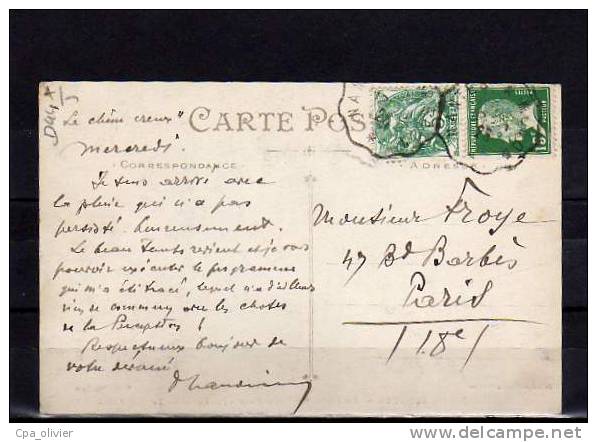 D44
CARTE POS
Le chêne creux"
mercredi.
CORRESPONDANCE
ADRES
Je suis arrivé avec
la pluie qui n'a pas
persisté heureusement.
Le beau temps revient et je vais
pouvoir exécuter le programme
qui m'a été tracé, lequel n'a d'ailleurs
rien de commun avec les choses
de la Perception !
Respectueux bonjour de
votre dévoué
Monsieur Froye
47 Bd Barbès
Paris
(18e)
Cpa_olivier
www.delcampe.net